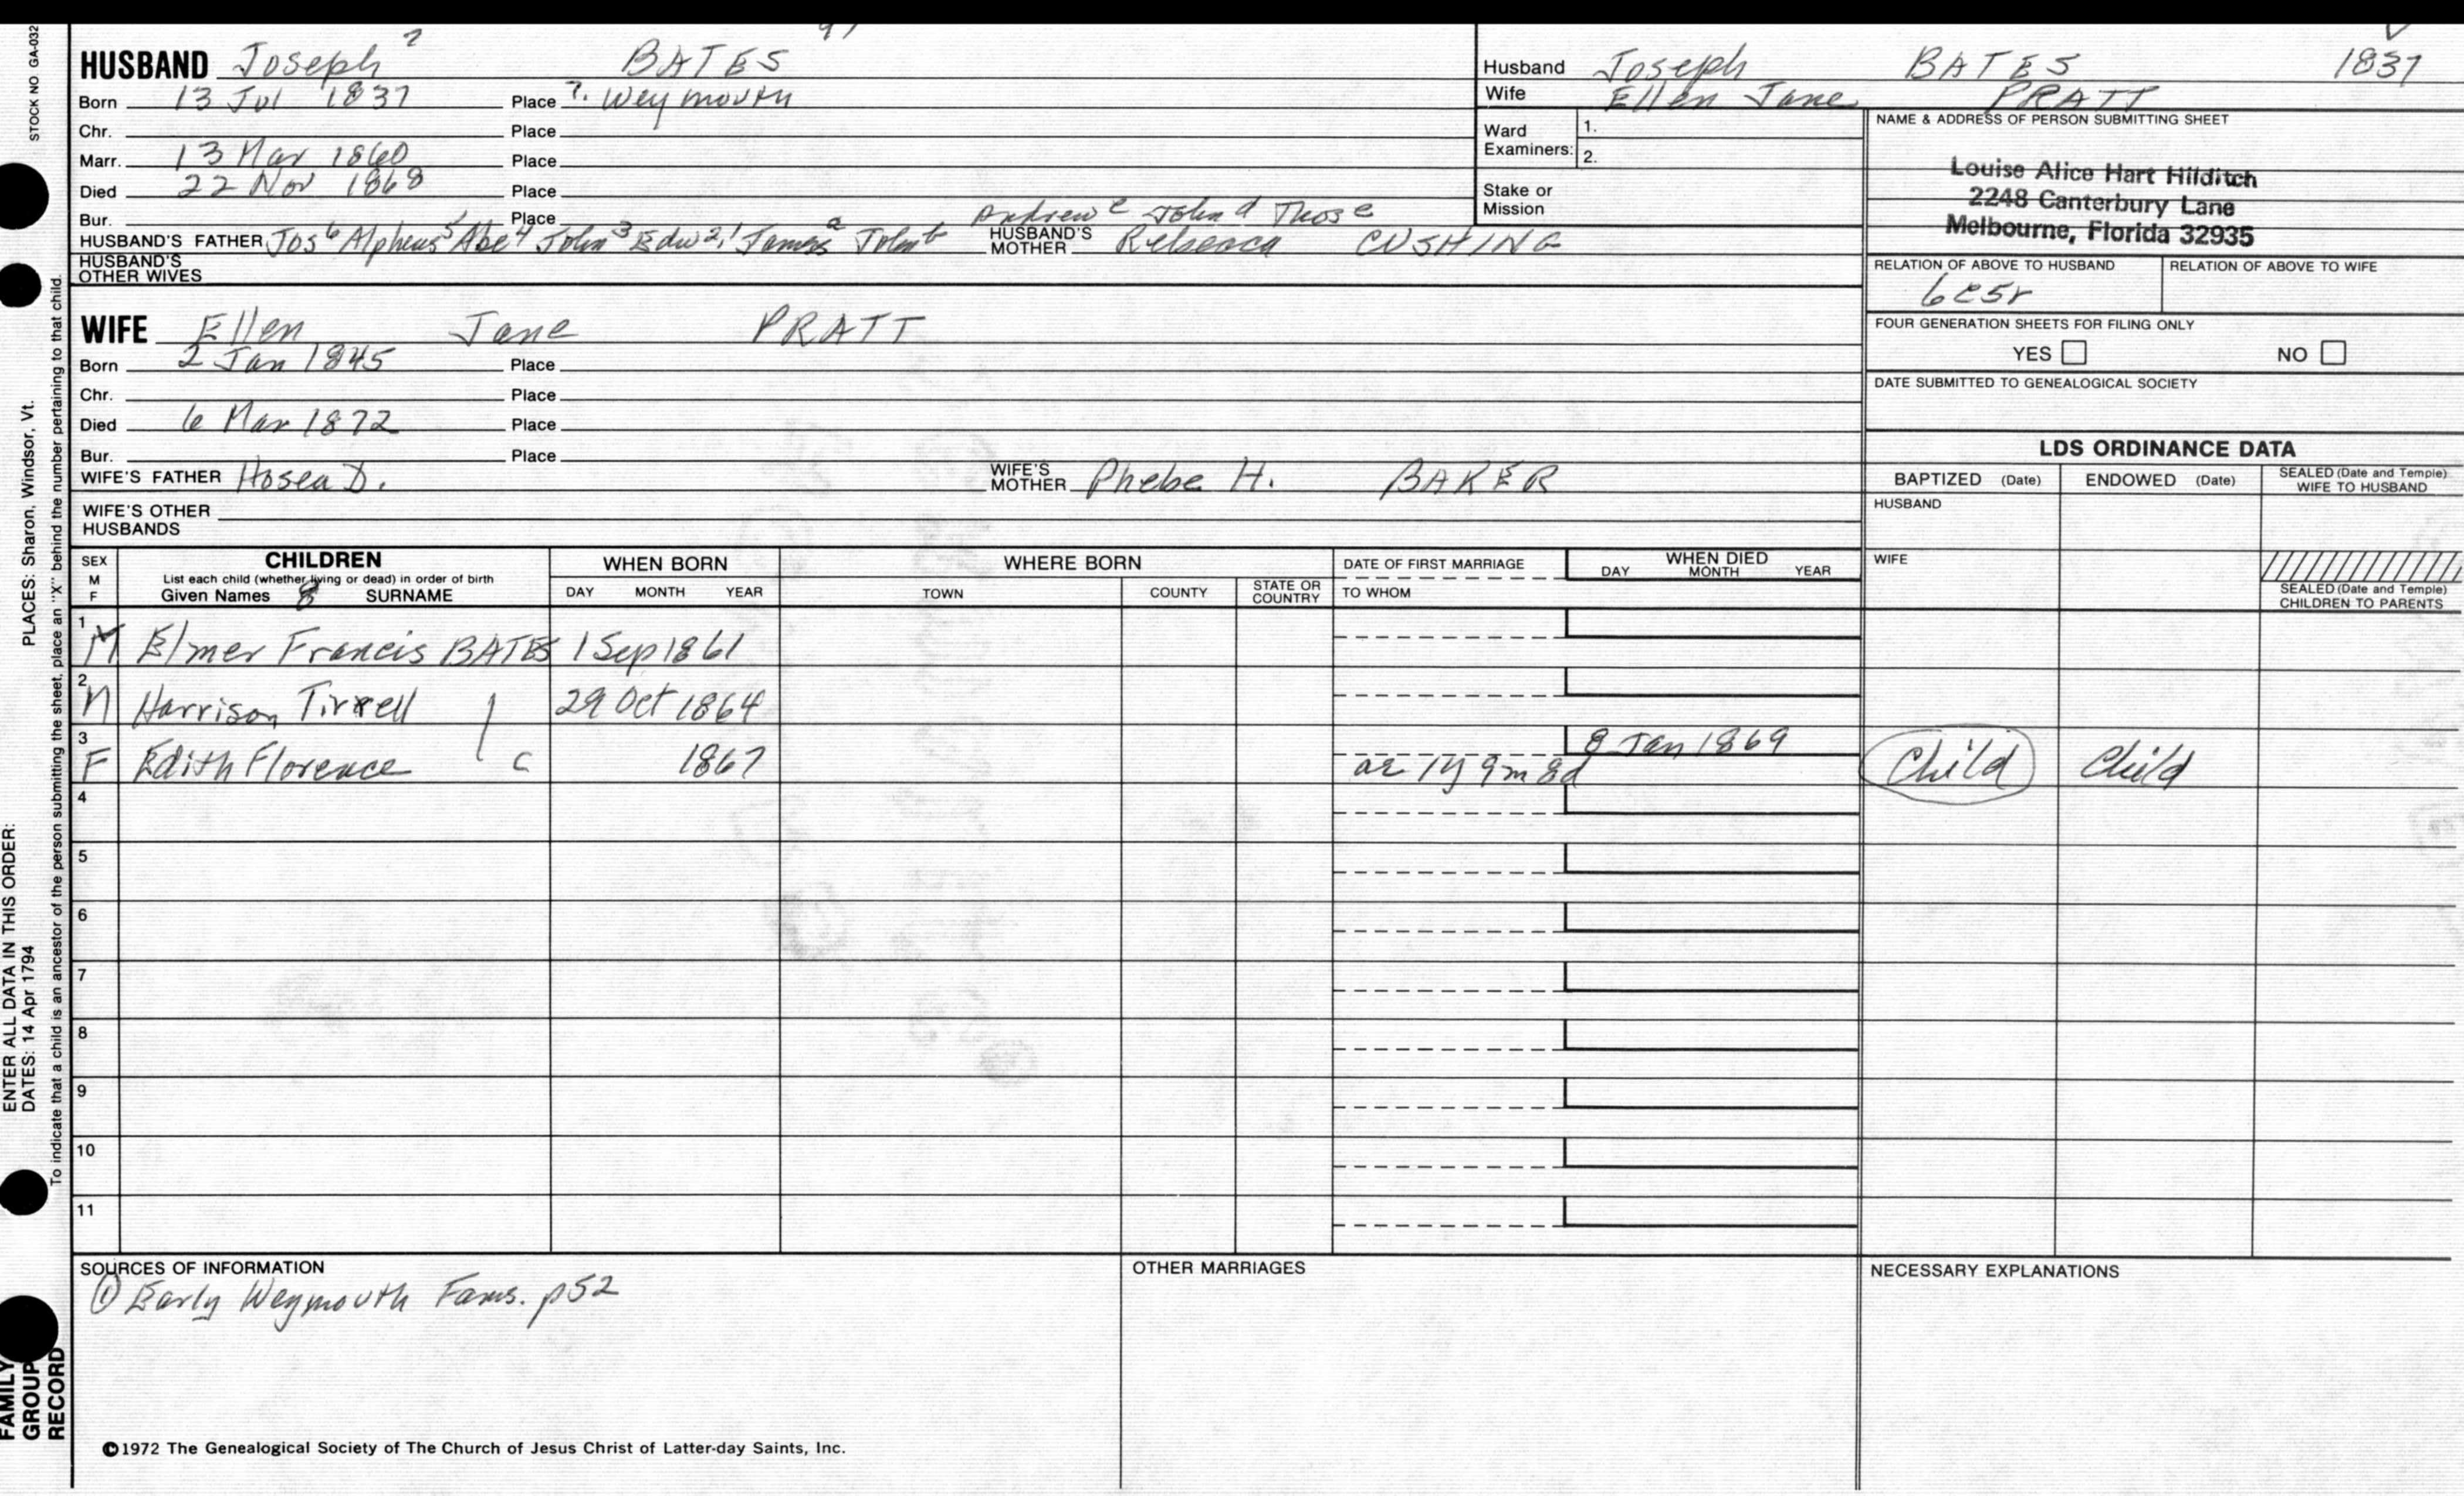 STOCK NO GA-032
HUSBAND Joseph 7 BATES
Born 13 Jul 1837 Place ?. Weymouth
Chr. Place
Marr. 13 Mar 1860 Place
Died 22 Nov 1868 Place
Bur. Place Andrew c John d Thos e
HUSBAND'S FATHER Jos 6 Alpheus 5 Abe 4 John 3 Edw 2,1 James a John b HUSBAND'S MOTHER Rebecca CUSHING
HUSBAND'S OTHER WIVES
Husband Joseph BATES 1837
Wife Ellen Jane PRATT
Ward Examiners: 1.
2.
Stake or Mission
NAME & ADDRESS OF PERSON SUBMITTING SHEET
Louise Alice Hart Hilditch
2248 Canterbury Lane
Melbourne, Florida 32935
RELATION OF ABOVE TO HUSBAND RELATION OF ABOVE TO WIFE
6c5r
FOUR GENERATION SHEETS FOR FILING ONLY
YES NO
DATE SUBMITTED TO GENEALOGICAL SOCIETY
WIFE Ellen Jane PRATT
Born 2 Jan 1845 Place
Chr. Place
Died 6 Mar 1872 Place
Bur. Place
WIFE'S FATHER Hosea D. WIFE'S MOTHER Phebe H. BAKER
WIFE'S OTHER HUSBANDS
LDS ORDINANCE DATA
BAPTIZED (Date) ENDOWED (Date) SEALED (Date and Temple) WIFE TO HUSBAND
HUSBAND
WIFE
SEALED (Date and Temple) CHILDREN TO PARENTS
SEX M F
CHILDREN
List each child (whether living or dead) in order of birth
Given Names SURNAME
WHEN BORN
DAY MONTH YEAR
WHERE BORN
TOWN COUNTY STATE OR COUNTRY
DATE OF FIRST MARRIAGE
TO WHOM
WHEN DIED
DAY MONTH YEAR
1 M Elmer Francis BATES 1 Sep 1861
2 M Harrison Tirrell 29 Oct 1864
3 F Edith Florence c 1867 8 Jan 1869
ae 1y 9m 8d Child Child
4
5
6
7
8
9
10
11
SOURCES OF INFORMATION
① Early Weymouth Fams. p52
OTHER MARRIAGES
NECESSARY EXPLANATIONS
©1972 The Genealogical Society of The Church of Jesus Christ of Latter-day Saints, Inc.
ENTER ALL DATA IN THIS ORDER: PLACES: Sharon, Windsor, Vt.
DATES: 14 Apr 1794
To indicate that a child is an ancestor of the person submitting the sheet, place an "X" behind the number pertaining to that child.
FAMILY
GROUP
RECORD